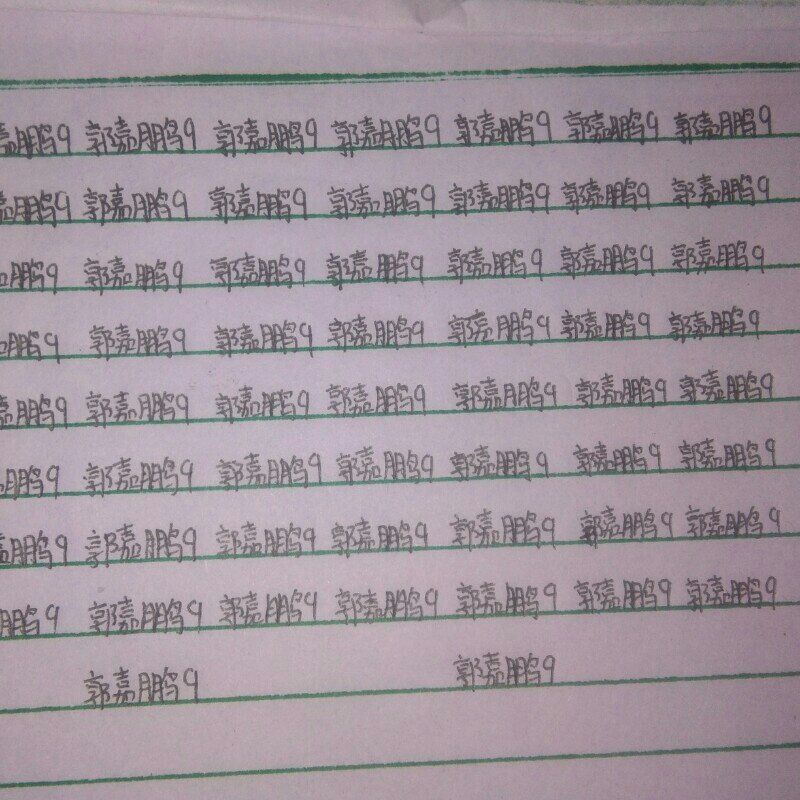 鹏9 郭嘉鹏9 郭嘉鹏9 郭嘉鹏9 郭嘉鹏9 郭嘉鹏9 郭嘉鹏9
鹏9 郭嘉鹏9 郭嘉鹏9 郭嘉鹏9 郭嘉鹏9 郭嘉鹏9 郭嘉鹏9
鹏9 郭嘉鹏9 郭嘉鹏9 郭嘉鹏9 郭嘉鹏9 郭嘉鹏9 郭嘉鹏9
鹏9 郭嘉鹏9 郭嘉鹏9 郭嘉鹏9 郭嘉鹏9 郭嘉鹏9 郭嘉鹏9
鹏9 郭嘉鹏9 郭嘉鹏9 郭嘉鹏9 郭嘉鹏9 郭嘉鹏9 郭嘉鹏9
鹏9 郭嘉鹏9 郭嘉鹏9 郭嘉鹏9 郭嘉鹏9 郭嘉鹏9 郭嘉鹏9
鹏9 郭嘉鹏9 郭嘉鹏9 郭嘉鹏9 郭嘉鹏9 郭嘉鹏9 郭嘉鹏9
鹏9 郭嘉鹏9 郭嘉鹏9 郭嘉鹏9 郭嘉鹏9 郭嘉鹏9 郭嘉鹏9
郭嘉鹏9 郭嘉鹏9